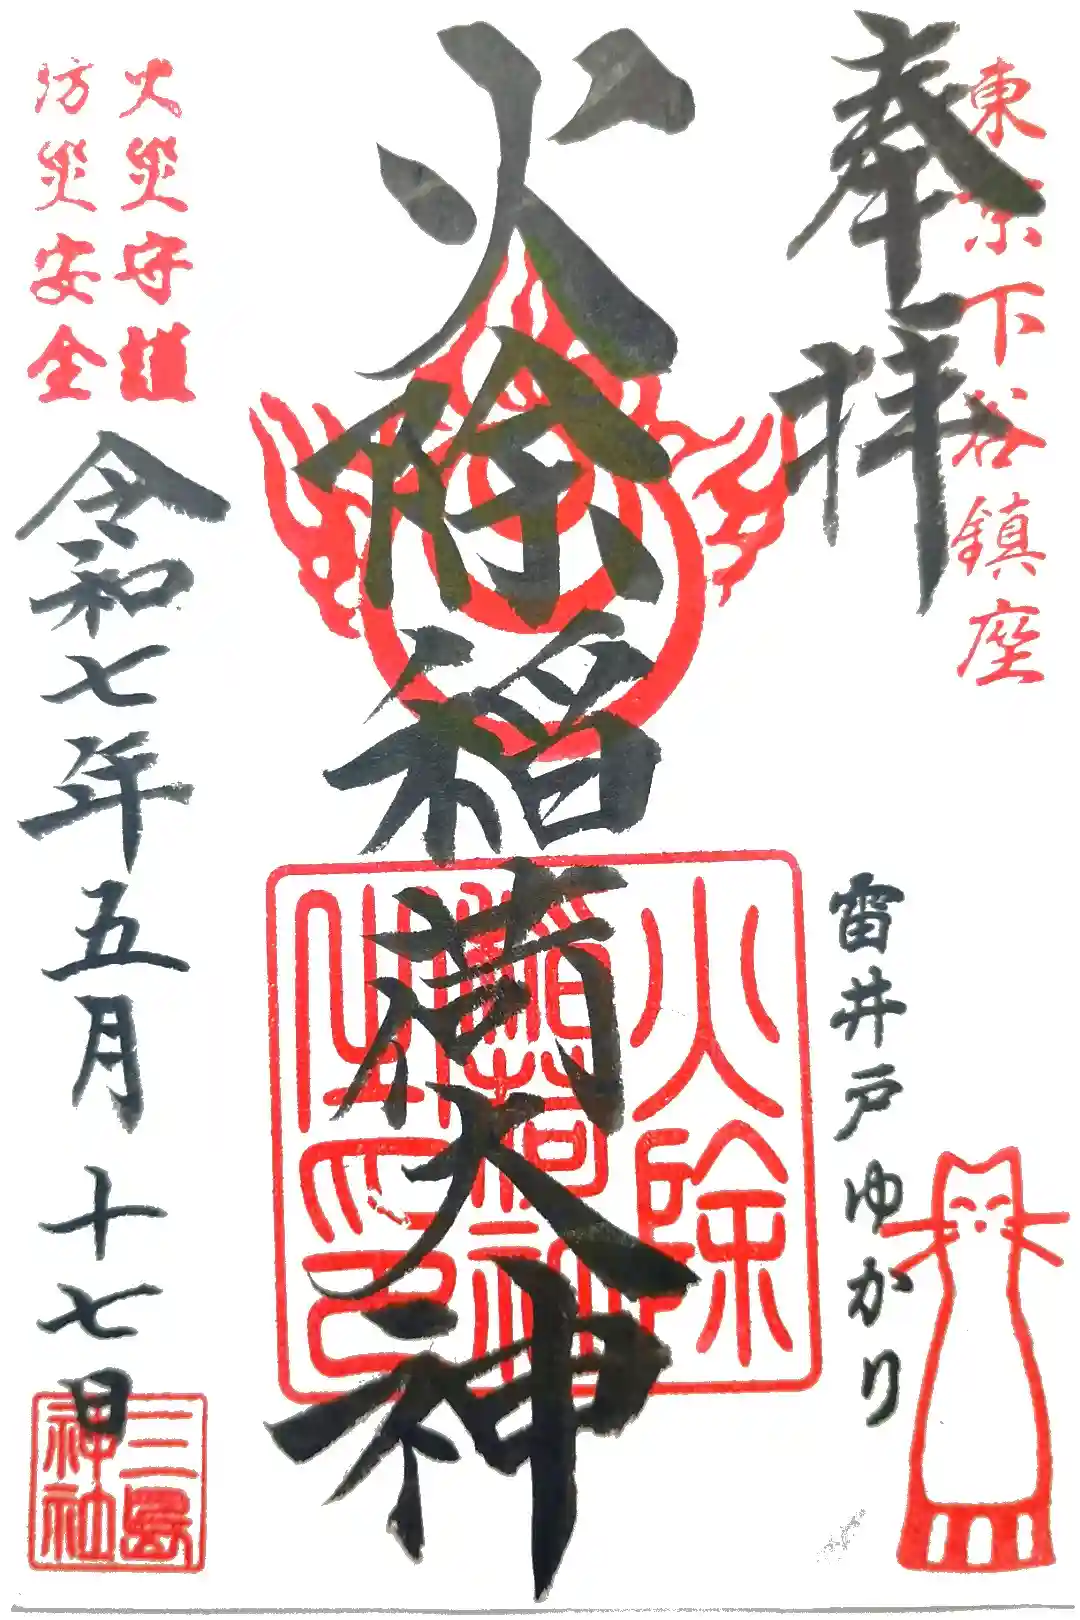 東京下谷鎮座
奉拝
雷井戸ゆかり
火除稲荷大神
火除
稲荷神社
之印
火災守護
防災安全
令和七年五月十七日
三島
神社